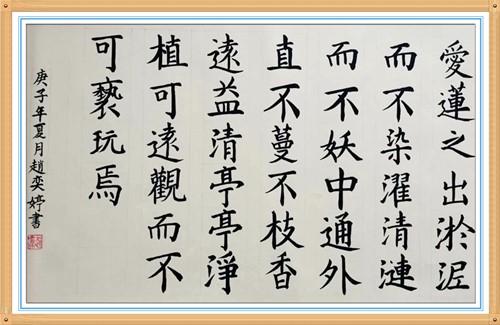 愛蓮之出淤泥
而不染濯清漣
而不妖中通外
直不蔓不枝香
遠益清亭亭淨
植可遠觀而不
可褻玩焉
庚子年夏月趙奕婷書